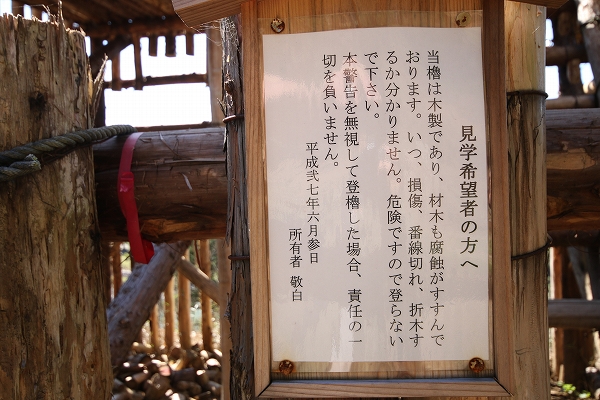 見学希望者の方へ
当櫓は木製であり、材木も腐蝕がすすんで
おります。いつ、損傷、番線切れ、折木す
るか分かりません。危険ですので登らない
で下さい。
本警告を無視して登櫓した場合、責任の一
切を負いません。
平成弐七年六月参日
所有者 敬白